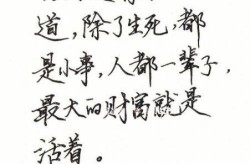 道，除了生死，都
是小事，人都一辈子，
最大的财富就是
活着。